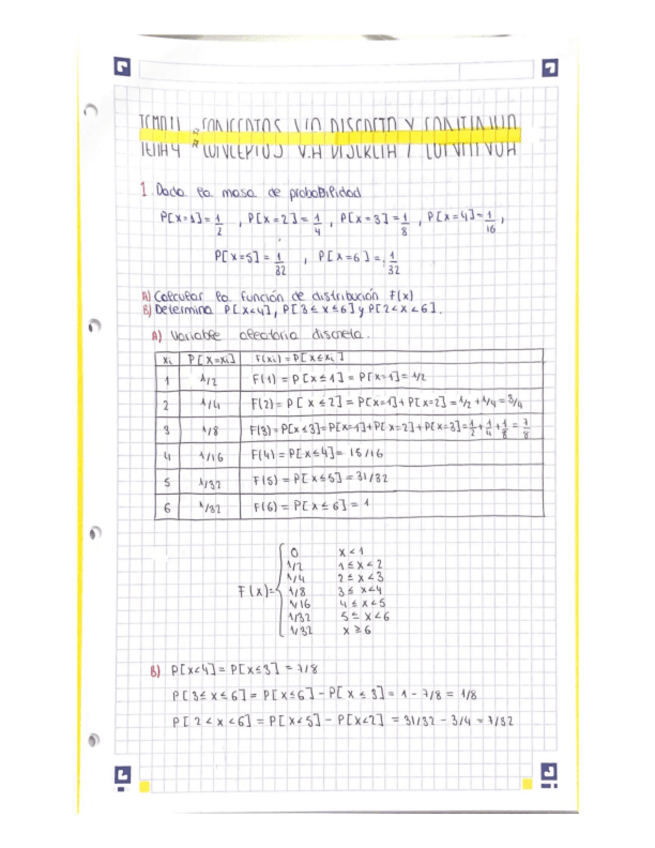 TEMA 4: CONCEPTOS V.A DISCRETA Y CONTINUA
1. Dada la masa de probabilidad
P[X=1]=1/2 , P[X=2]=1/4 , P[X=3]=1/8 , P[X=4]=1/16 ,
P[X=5]=1/32 , P[X=6]=1/32
A) Calcular la función de distribución F(x)
B) Determina P[X<4], P[3≤x≤6] y P[2<x<6].
A) Variable aleatoria discreta.
xi P[X=xi] F(xi)=P[X≤xi]
1 1/2 F(1) = P[X≤1] = P[X=1] = 1/2
2 1/4 F(2) = P[X≤2] = P[X=1]+P[X=2] = 1/2+1/4 = 3/4
3 1/8 F(3) = P[X≤3] = P[X=1]+P[X=2]+P[X=3] = 1/2+1/4+1/8 = 7/8
4 1/16 F(4) = P[X≤4] = 15/16
5 1/32 F(5) = P[X≤5] = 31/32
6 1/32 F(6) = P[X≤6] = 1
0 x<1
1/2 1≤x<2
1/4 2≤x<3
F(x)= 1/8 3≤x<4
1/16 4≤x<5
1/32 5≤x<6
1/32 x≥6
B) P[X<4] = P[X≤3] = 7/8
P[3≤x≤6] = P[X≤6] - P[X≤3] = 1 - 7/8 = 1/8
P[2<x<6] = P[X<5] - P[X<2] = 31/32 - 3/4 = 7/32